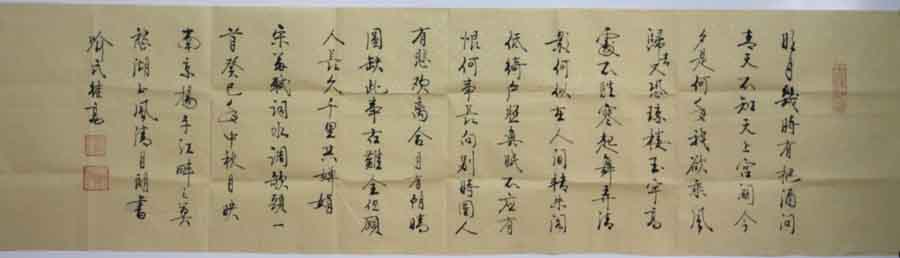 明月幾時有把酒問
青天不知天上宫闕今
夕是何年我欲乘風
歸去又恐瓊樓玉宇高
處不勝寒起舞弄清
影何似在人间轉朱阁
低綺户照無眠不應有
恨何事長向别時圆人
有悲欢离合月有阴晴
圆缺此事古難全但願
人長久千里共婵娟
宋苏轼词水调歌頭一
首癸巳年中秋月映
南京揚子江畔之莫
愁湖上風清月朗書